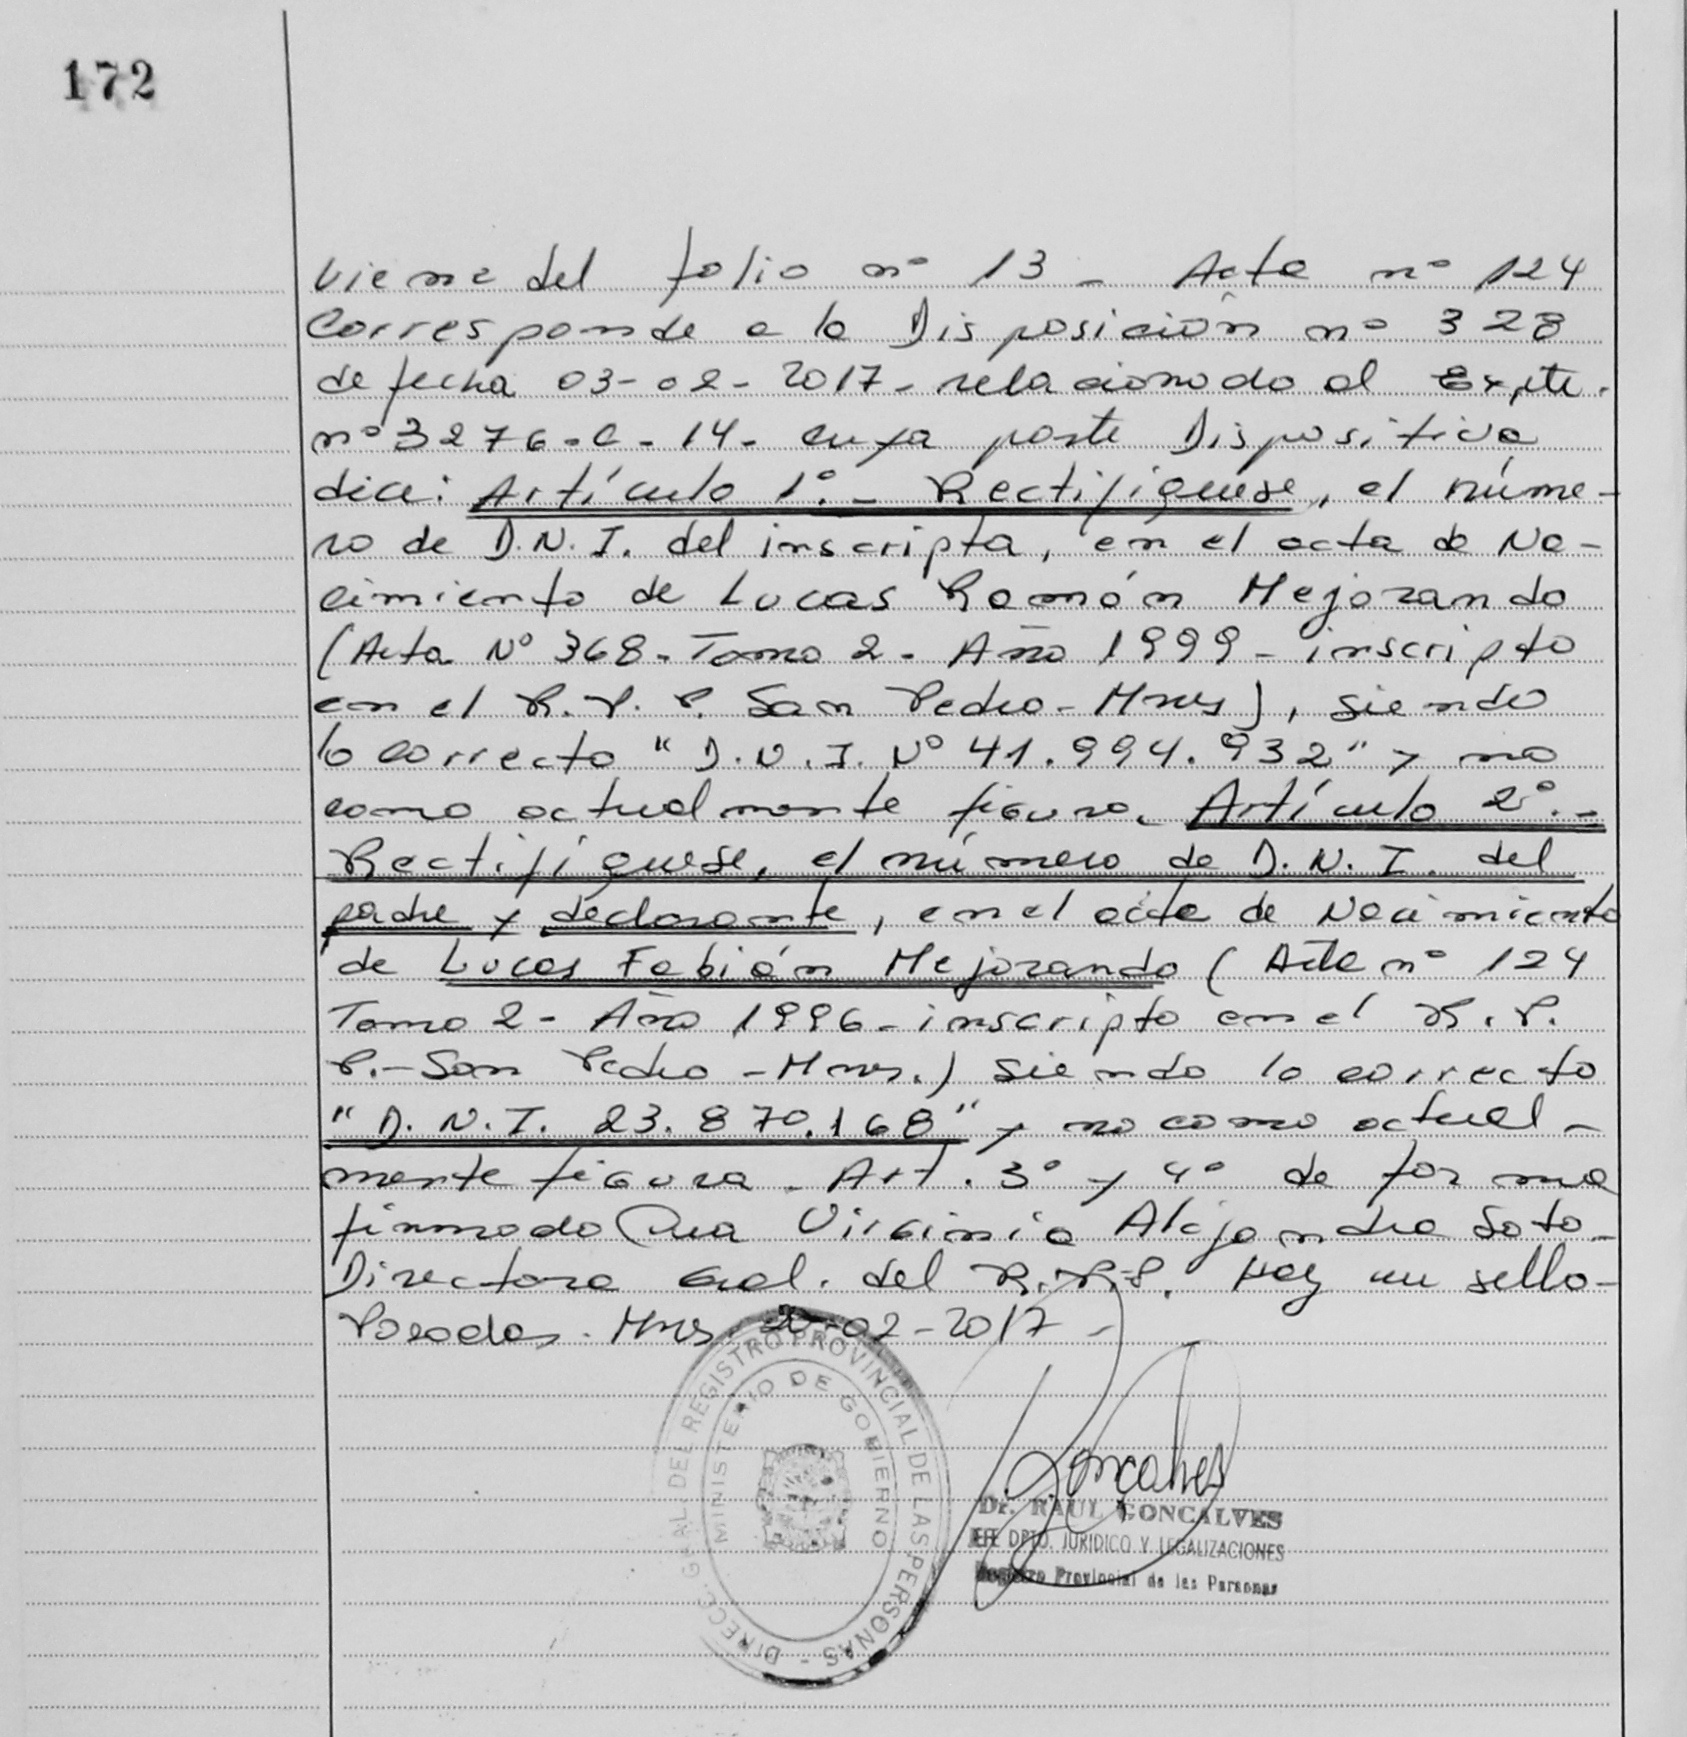 172
Viene del folio nº 13 - Acta nº 124
Corresponde a la Disposición nº 328
de fecha 03-02-2017- relacionado al Expte.
nº 3276-C-14- cuya parte Dispositiva
dice: Artículo 1º.- Rectifíquese, el núme-
ro de D.N.I. del inscripta, en el acta de Na-
cimiento de Lucas Ramón Mejorando
(Acta Nº 368-Tomo 2- Año 1999- inscripto
en el R.P.P. San Pedro-Mnes), siendo
lo correcto "D.N.I. Nº 41.994.932" y no
como actualmente figura. Artículo 2º.-
Rectifíquese, el número de D.N.I. del
padre y declarante, en el acta de Nacimiento
de Lucas Fabián Mejorando (Acta nº 124
Tomo 2- Año 1996- inscripto en el R.P.
P.-San Pedro -Mnes.) siendo lo correcto
"D.N.I. 23.870.168" y no como actual-
mente figura. Art. 3º y 4º de forma
firmado Dra Virginia Alejandra Soto-
Directora Gral. del R.P.P. Hay un sello-
Posadas. Mnes. 20-02-2017-
DIRECC. GRAL. DEL REGISTRO PROVINCIAL DE LAS PERSONAS -
MINISTERIO DE GOBIERNO
Goncalves
Dr. RAUL GONCALVES
JEFE DPTO. JURIDICO Y LEGALIZACIONES
Registro Provincial de las Personas